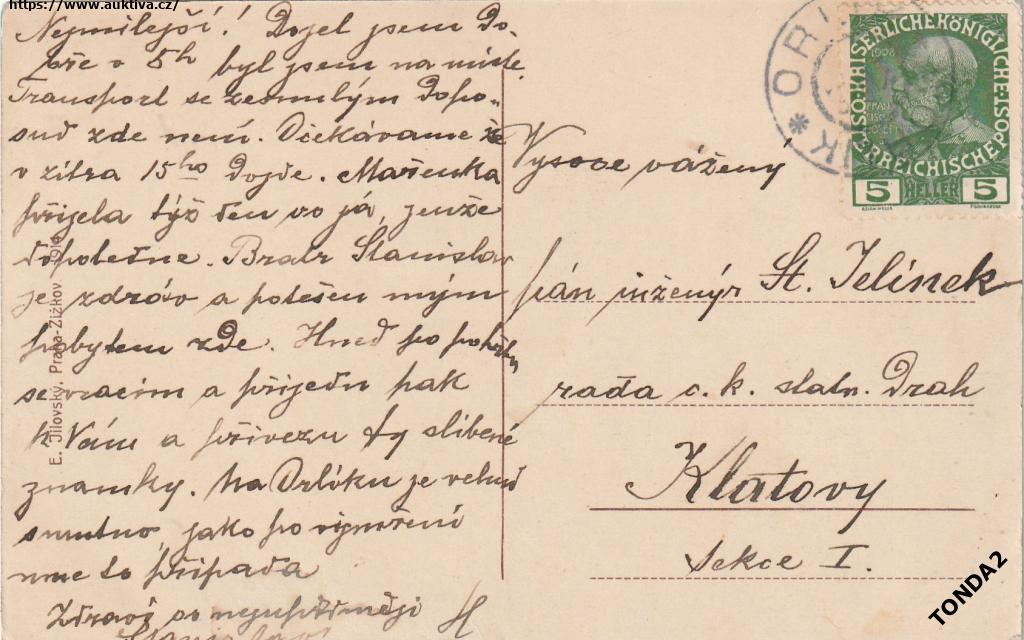 https://www.auktiva.cz/
Nejmilejší! Dojel jsem Do-
bře v 5h byl jsem na místě.
Transport se zesnulým Dopo-
sud zde není. Očekáváme že
v zítra 15ho Dojde. Mařenka
přijela týž den co já, jenže
dopoledne. Bratr Stanislav
je zdráv a potěšen mým
pobytem zde. Hned po pohřbu
se vracím a přijedu pak
k Vám a přivezu ty slíbené
známky. Na Orlíku je velmi
smutno, jako po vymření
mne to připadá
Zdraví co nejupřímněji
E. Jílovský, Praha-Žižkov 1914
ORLÍK
KAISERLICHE KÖNIGLICHE ÖSTERREICHISCHE POST
1908
5 HELLER 5
Vysoce vážený
pán inženýr St. Jelínek
rada c. k. státn. Drah
Klatovy
Sekce I.
TONDA2